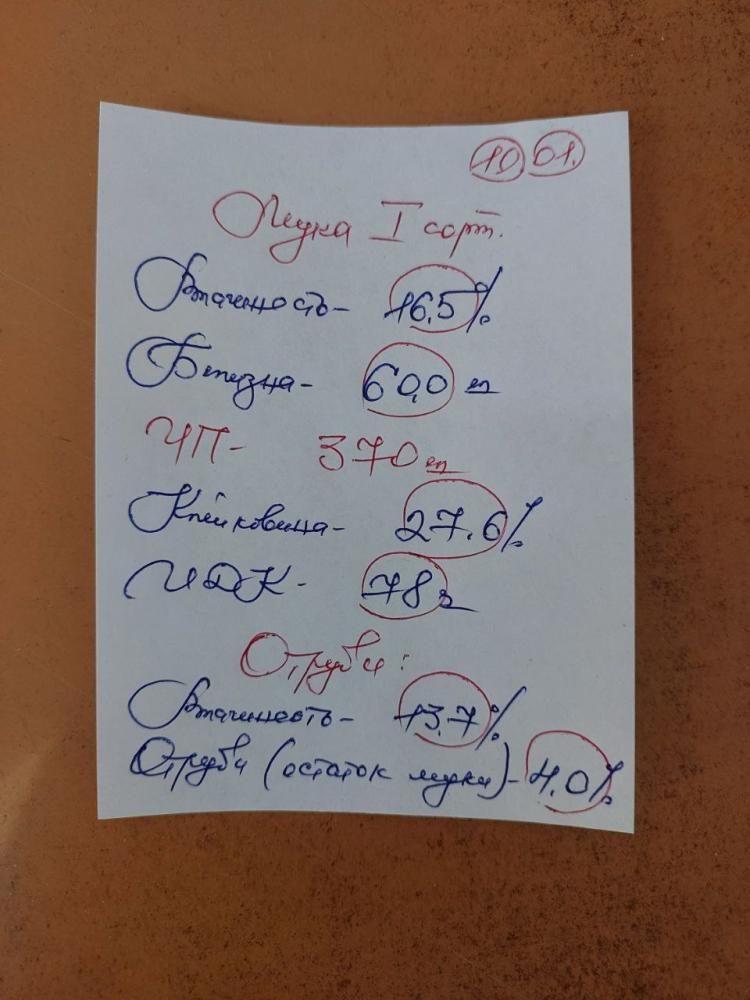 10.01.
Мука I сорт.
Влажность- 16.5%
Белизна- 60,0 еп
ЧП- 370 еп
Клейковина- 27.6%
ИДК- 78
Отруби:
Влажность- 13.7%
Отруби (остаток муки)- 4.0%